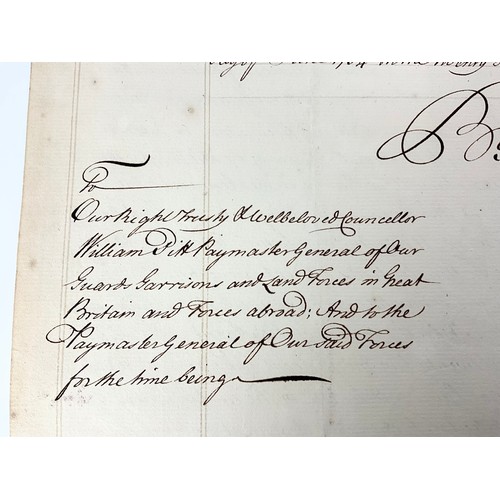 To
Our Right Trusty & Welbeloved Councellor
William Pitt Paymaster General of Our
Guards Garrisons and Land Forces in Great
Britain and Forces abroad; And to the
Paymaster General of Our said Forces
for the time being